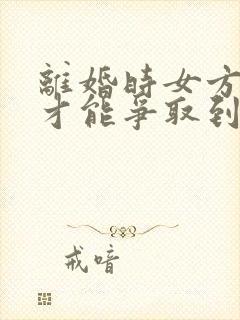 離婚時女方
才能爭取到
戒喑